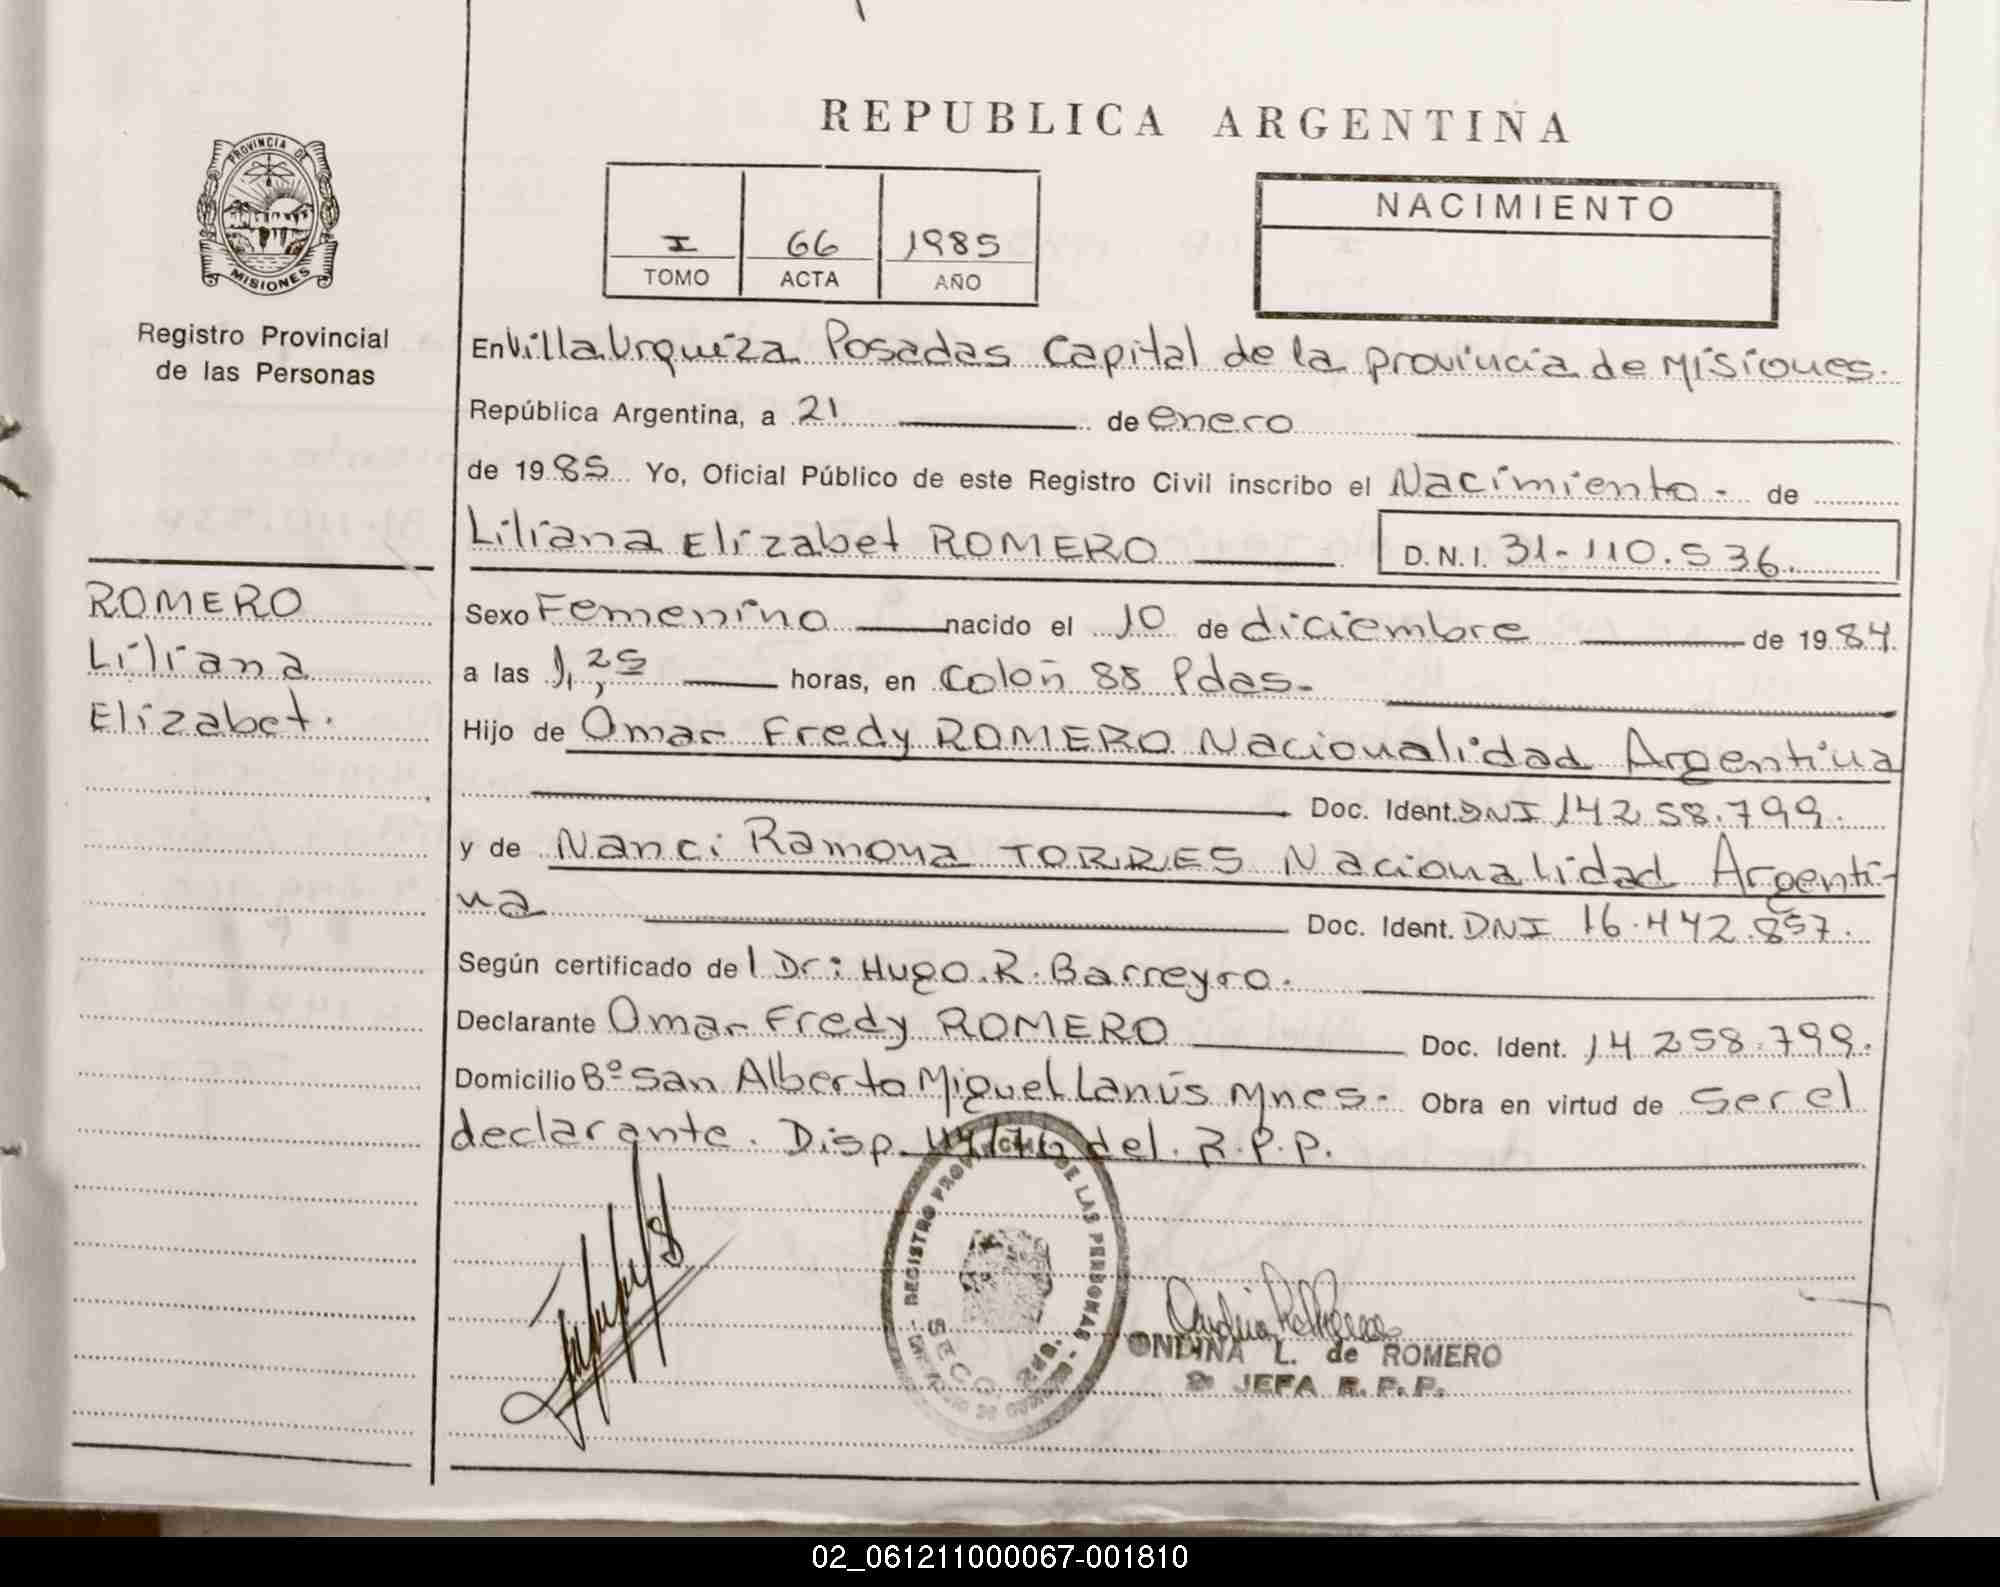 REPUBLICA ARGENTINA
PROVINCIA DE
MISIONES
Registro Provincial
de las Personas
I 66 1985
TOMO ACTA AÑO
NACIMIENTO
En Villa Urquiza Posadas Capital de la provincia de Misiones.
República Argentina, a 21 de enero
de 1985 Yo, Oficial Público de este Registro Civil inscribo el Nacimiento - de
Liliana Elizabet ROMERO D.N.I. 31-110.536.
ROMERO
Liliana
Elizabet.
Sexo Femenino nacido el 10 de diciembre de 1984.
a las 1,25 horas, en Colón 88 Pdas-
Hijo de Omar Fredy ROMERO Nacionalidad Argentina
Doc. Ident. DNI 14258.799.
y de Nanci Ramona TORRES Nacionalidad Argenti-
na Doc. Ident. DNI 16.442.857.
Según certificado del Dr: Hugo. R. Barreyro.
Declarante Omar Fredy ROMERO Doc. Ident. 14258.799.
Domicilio Bº San Alberto Miguel Lanús Mnes- Obra en virtud de ser el
declarante. Disp. del R.P.P.
REGISTRO PROVINCIAL DE LAS PERSONAS
ONDINA L. de ROMERO
JEFA R. P. P.
02_061211000067-001810